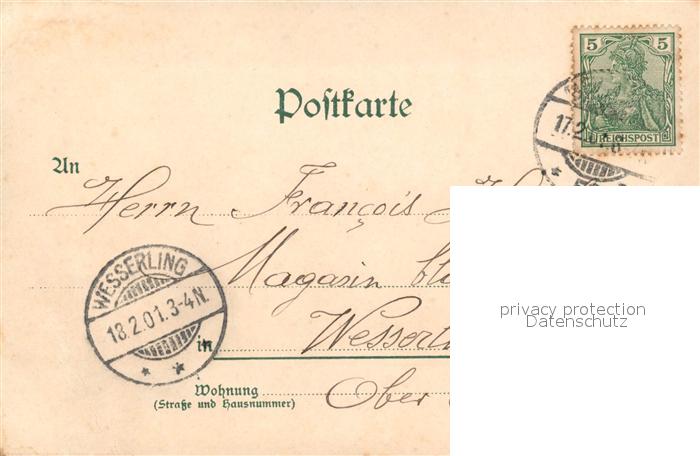 5 5
REICHSPOST
Postkarte
17.2.
An
Herrn François
WESSERLING
18.2.01.3-4N.
Magasin
privacy protection
Datenschutz
in
Wohnung
Ober
(Straße und Hausnummer)